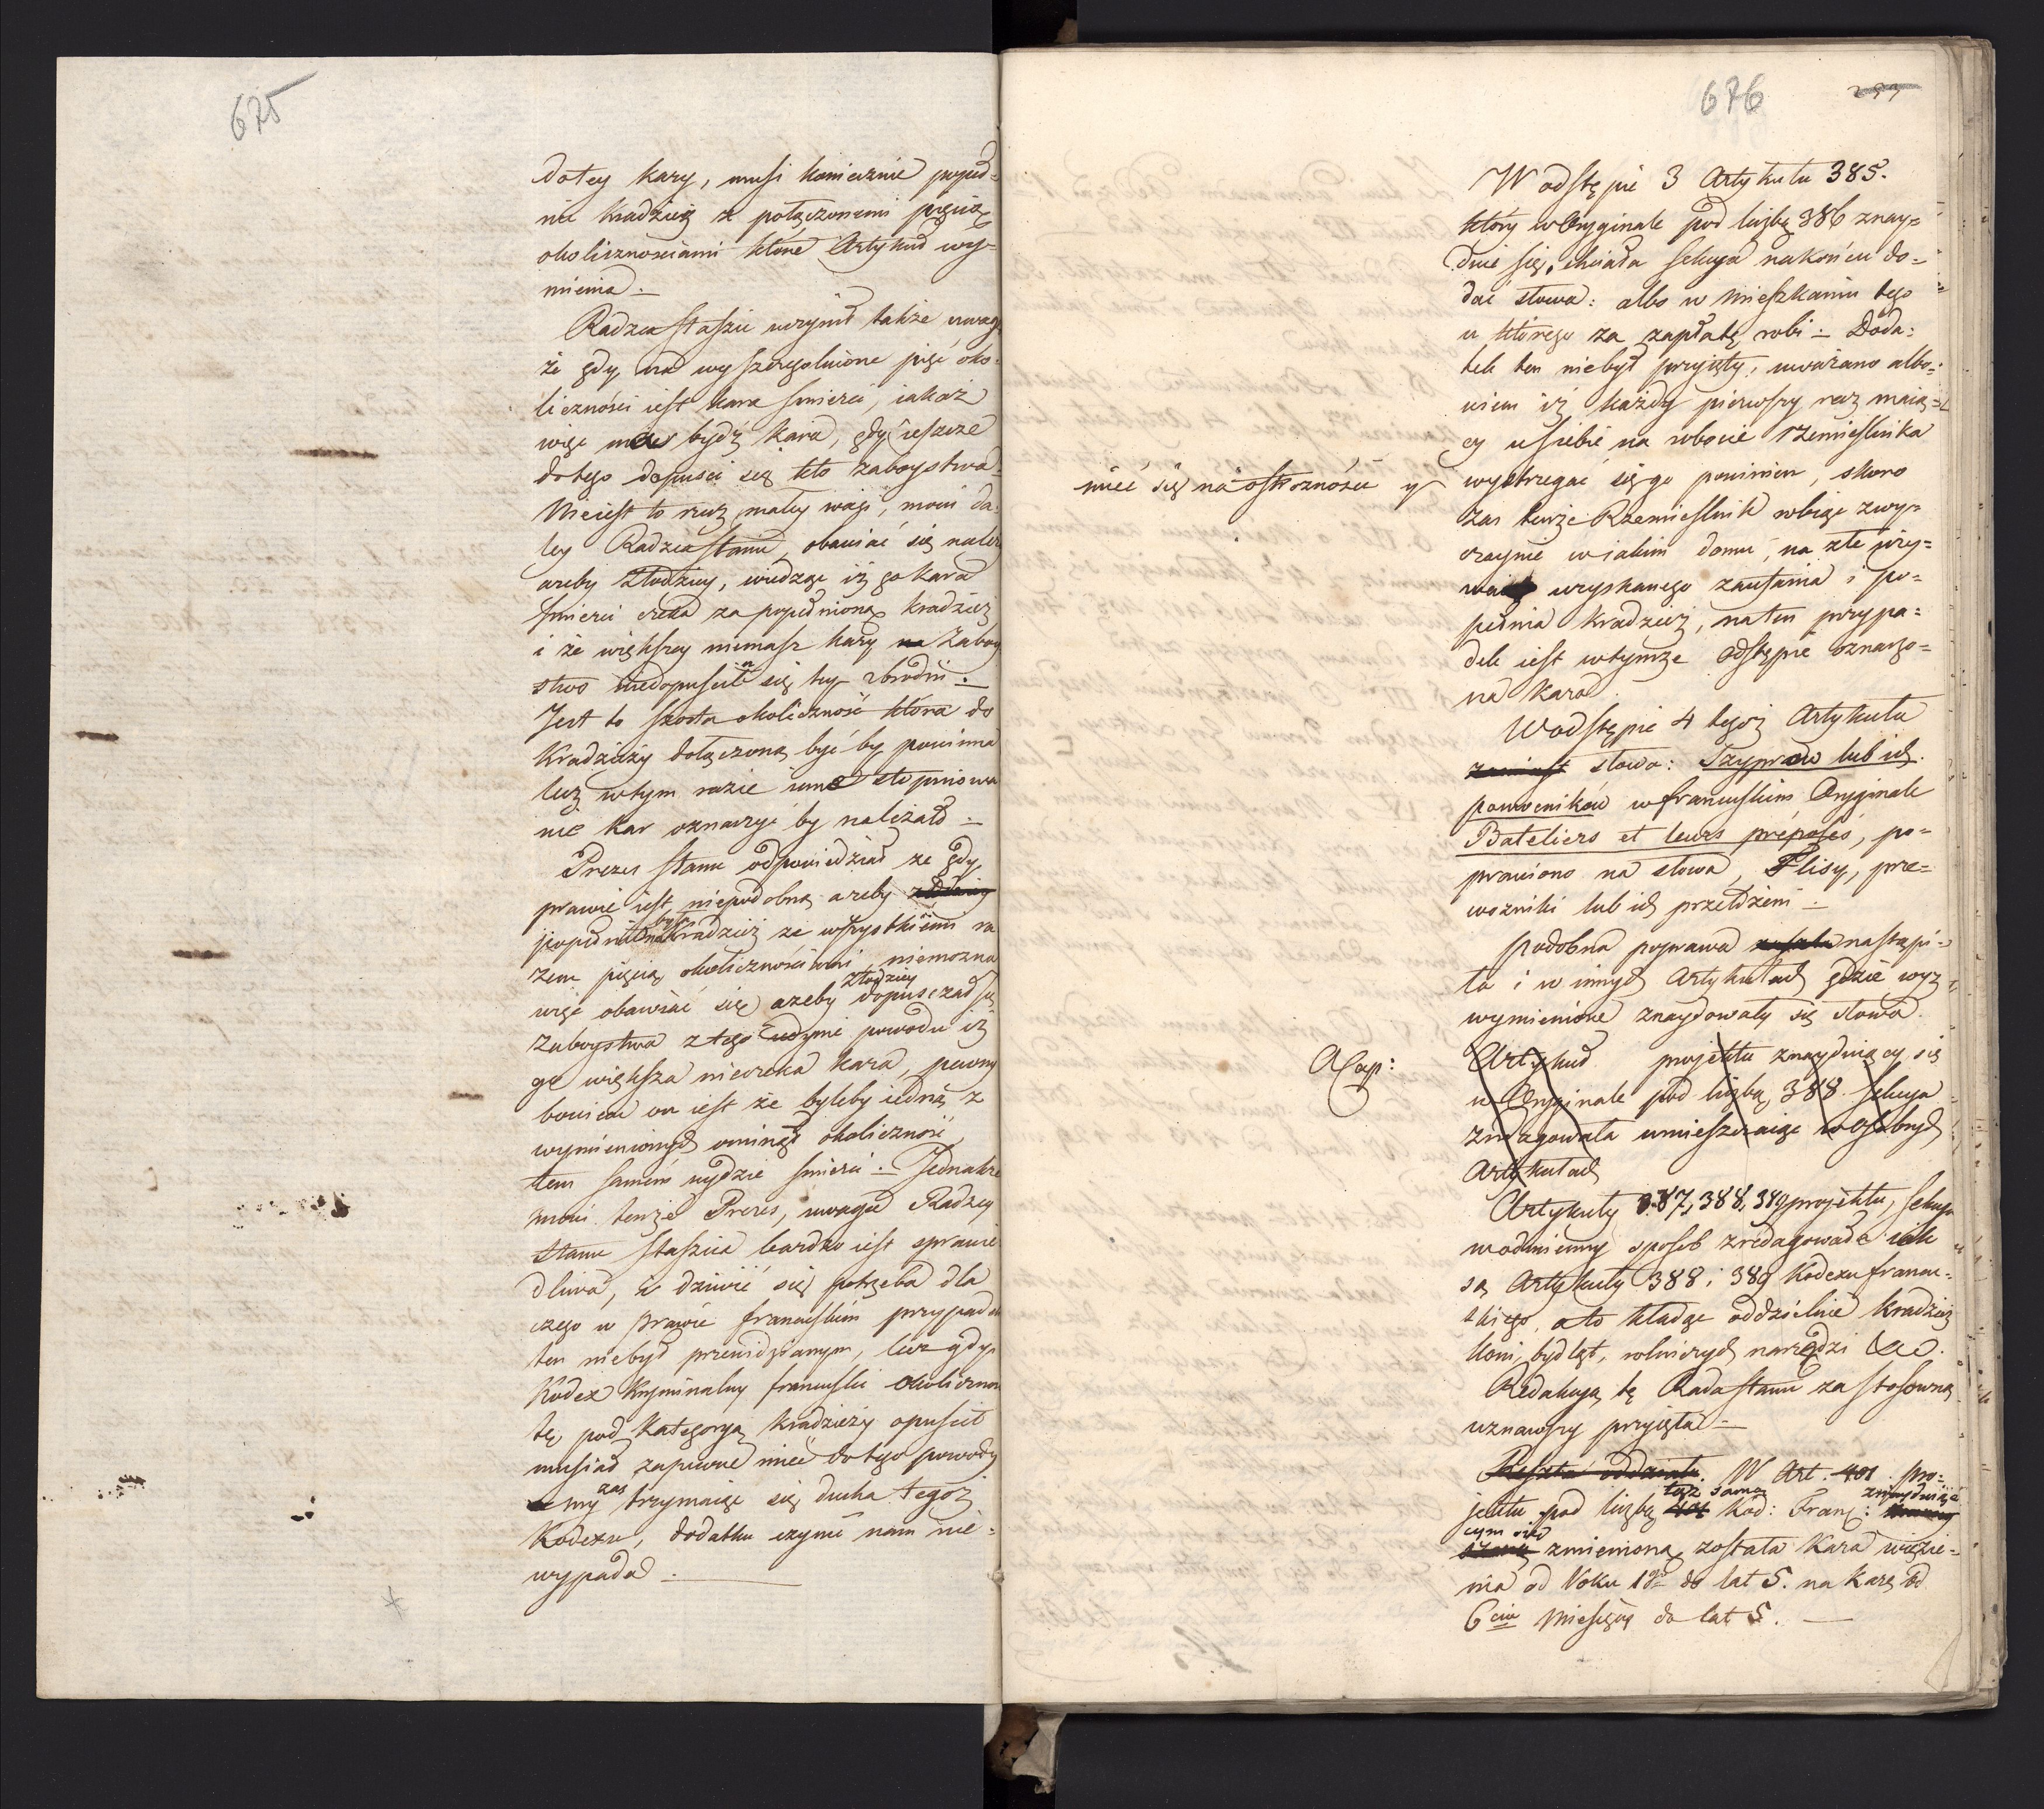 625
do tey kary, musi koniecznie popeł=
nić kradzież z połączonemi pięcią
okolicznościami które Artykuł wy=
mienia.
Radzca Staszic uczynił także uwagę
że gdy nad wyszczególnione pięć oko=
liczności iest kara śmierci, iakaż
więc ma bydź kara, gdy ieszcze
do tego dopuści się kto zaboystwa.
Nieiest to rzecz małey wagi, mówi da=
ley Radzca Stanu, obawiać się należy
ażeby złodziey, wiedząc iż go kara
śmierci czeka za popełnioną kradzież
i że większey niemasz kary na zaboy
stwo niedopuścił się tey zbrodni.
Jest to szósta okoliczność która do
kradzieży dołączoną być by powinna
lecz w tym razie inne stopniowa
nie kar oznaczyć by należało.
Prezes Stanu odpowiedział że gdy
prawie iest niepodobną ażeby złodziey
być
popełniona kradzież ze wszystkiemi ra
zem pięcią okolicznościami, niemożna
złodziey
więc obawiać się ażeby dopuszczał się
zaboystwa z tego iedynie powodu iż
go większa nieczeka kara, pewny
bowiem on iest że byleby iedną z
wymienionych ominął okoliczność
tem samém uydzie śmierci. Jednakże
mówi tenże Prezes, uwaga Radzcy
Stanu Staszica bardzo iest sprawie
dliwa, i dziwić się potrzeba dla
czego w prawie francuskiém przypadek
ten niebył przewidzianym, lecz gdy
Kodex Kryminalny francuski okoliczność
tę pod kategoryą kradzieży opuścił
musiał zapewne mieć do tego powody
zaś
my trzymaiąc się ducha tegoż
Kodexu, dodatku czynić nam nie=
wypada.
676
W odstępie 3 Artykułu 385.
który w Oryginale pod liczbą 386 znay=
duie się, chciała Sekcya na końcu do=
dać słowa: albo w mieszkaniu tego
u którego za zapłatę robi. Doda=
tek ten niebył przyięty, uważano albo=
wiem iż każdy pierwszy raz maią=
cy u siebie na robocie rzemieślnika
mieć się na ostrożności y
wystrzegać się go powinien, skoro
zaś tenże Rzemieślnik robiąc zwy=
czaynie w iakim domu, na złe uży=
wa uzyskanego zaufania i po=
pełnia kradzież, na ten przypa=
dek iest w tymże odstępie oznaczo=
na kara.
W odstępie 4 tegoż Artykułu
zamiast słowa: Szyprów lub ich
pomocników w francuskim Oryginale
Bateliers et leurs préposés, po=
prawiono na słowa, Flisy, prze=
wozniki lub ich przełożeni.
Podobna poprawa została nastąpi=
ła i w innych Artykułach gdzie wyż
wymienione znaydowały się słowa.
ACap:
Artykuł projektu znayduiący się
w Oryginale pod liczbą 388 Sekcya
zredagowała umieszczaiąc w osobnych
Artykułach
Artykuły 387, 388, 389 projektu, Sekcya
w odmienny sposób zredagowała iak
są Artykuły 388 i 389 Kodexu francu=
skiego, a to kładąc oddzielnie kradzież
koni, bydląt, rolniczych narzędzi &c.
Redakcyą tę Rada Stanu za stosowną
uznawszy przyięła.
Reszta oddziału. W Art. 401 pro=
taż sama znayduią
jektu pod liczbą 401 Kod: Franc:
cym się
zmienioną została kara więzie=
nia od Roku 1go do lat 5. na karę od
6ciu Miesięcy do lat 5.